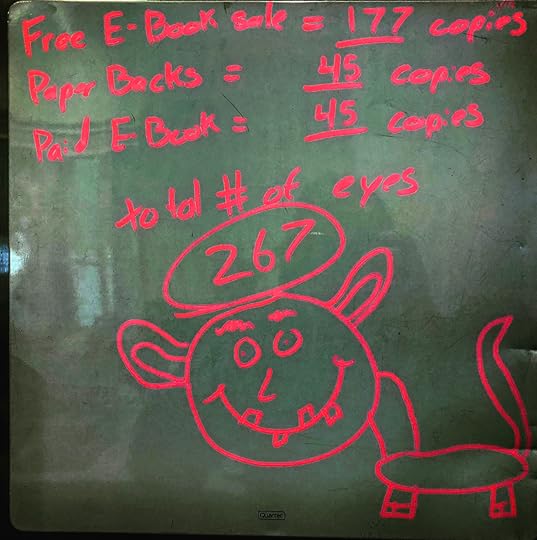 Free E-Book sale = 177 copies
Paper Backs = 45 copies
Paid E Book = 45 copies
total # of eyes
267
Quartet